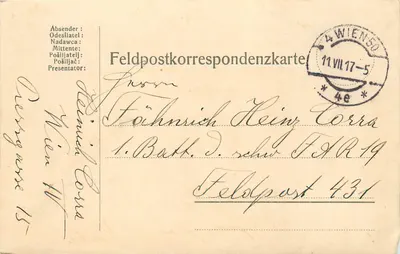 Absender:
Odesílatel:
Nadawca:
Mittente:
Pošiljatelj:
Pošiljač:
Presentator:
Feldpostkorrespondenzkarte
4 WIEN 50
11.VII.17-5
* 4e *
Herrn
Fähnrich Heinz Corra
1. Batt. d. schw F A R 19
Feldpost 431
Heinrich Corra
Wien IV
Pressgasse 15